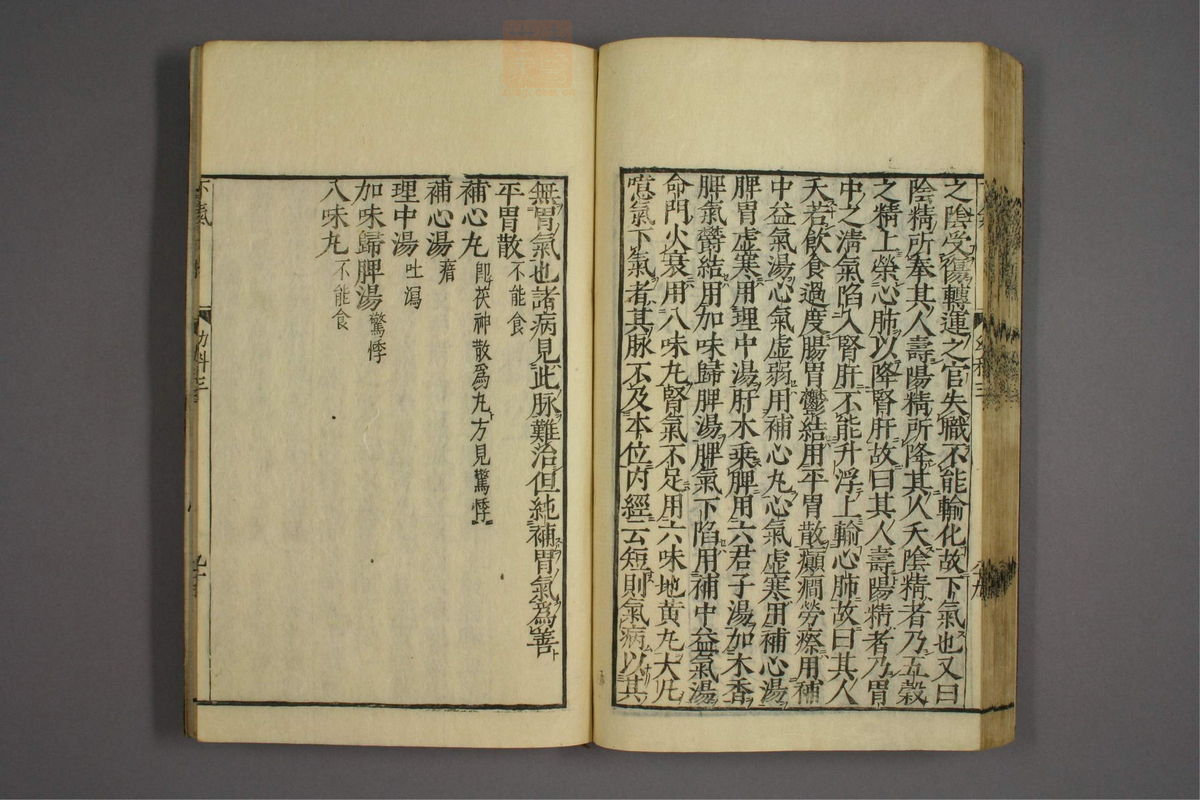 之陰受傷轉運之官失職不能輸化故下氣也又曰
陰精所奉其人壽陽精所降其人夭陰精者乃五穀
之精上榮心肺以降腎肝故曰其人壽陽精者乃胃
中之清氣陷入腎肝不能升浮上輸心肺故曰其人
夭若飲食過度腸胃鬱結用平胃散癲癇勞瘵用補
中益氣湯心氣虛弱用補心丸心氣虛寒用補心湯
脾胃虛寒用理中湯肝木乘脾用六君子湯加木香
脾氣欝結用加味歸脾湯脾氣下陷用補中益氣湯
命門火衰用八味丸腎氣不足用六味地黄丸大凡
噫氣下氣者其脉不及本位内經云短則氣病以其
無胃氣也諸病見此脉難治但純補胃氣爲善
平胃散 不能食
補心丸 卽茯神散爲丸方見驚悸
補心湯 瘖
理中湯 吐瀉
加味歸脾湯 驚悸
八味丸 不能食
下氣
幼科三